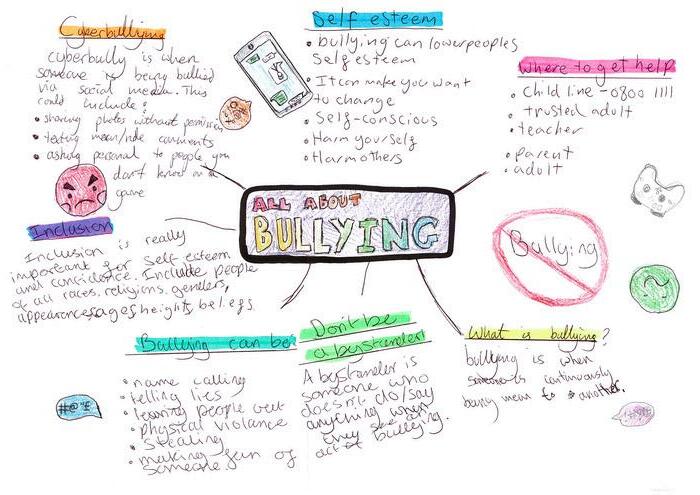 Cyberbullying
cyberbully is when
someone is being bullied
via social media. This
could include:
• sharing photos without permission
• texting mean/rude comments
• asking personal to people you
don't know on a
game
Self esteem
• bullying can lower peoples
self esteem
• It can make you want
to change
• Self-conscious
• Harm yourself
• Harm others
Where to get help
• Child line - 0800 1111
• trusted adult
• teacher
• parent
• adult
ALL ABOUT
BULLYING
Inclusion
Inclusion is really
important for self esteem
and confidence. Include people
of all races, religions, genders,
appearances, ages, heights, beliefs
Bullying
Bullying can be
• name calling
• telling lies
• leaving people out
• physical violance
• Stealing
• making fun of
someone.
#@*!
Don't be
a bystander!
A bystander is
someone who
doesn't do/say
anything when
they see an
act of bullying.
What is bullying?
bullying is when
someone is continuously
being mean to another.